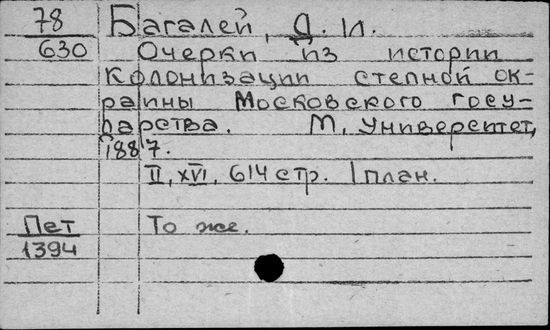 78 Багалей, Д. И.
630 Очерки из истории
колонизации степной ок-
раины Московского госу-
дарства. М, Университет,
1887.
II, XVI, 614 стр. 1 план.
Пет То же.
1394